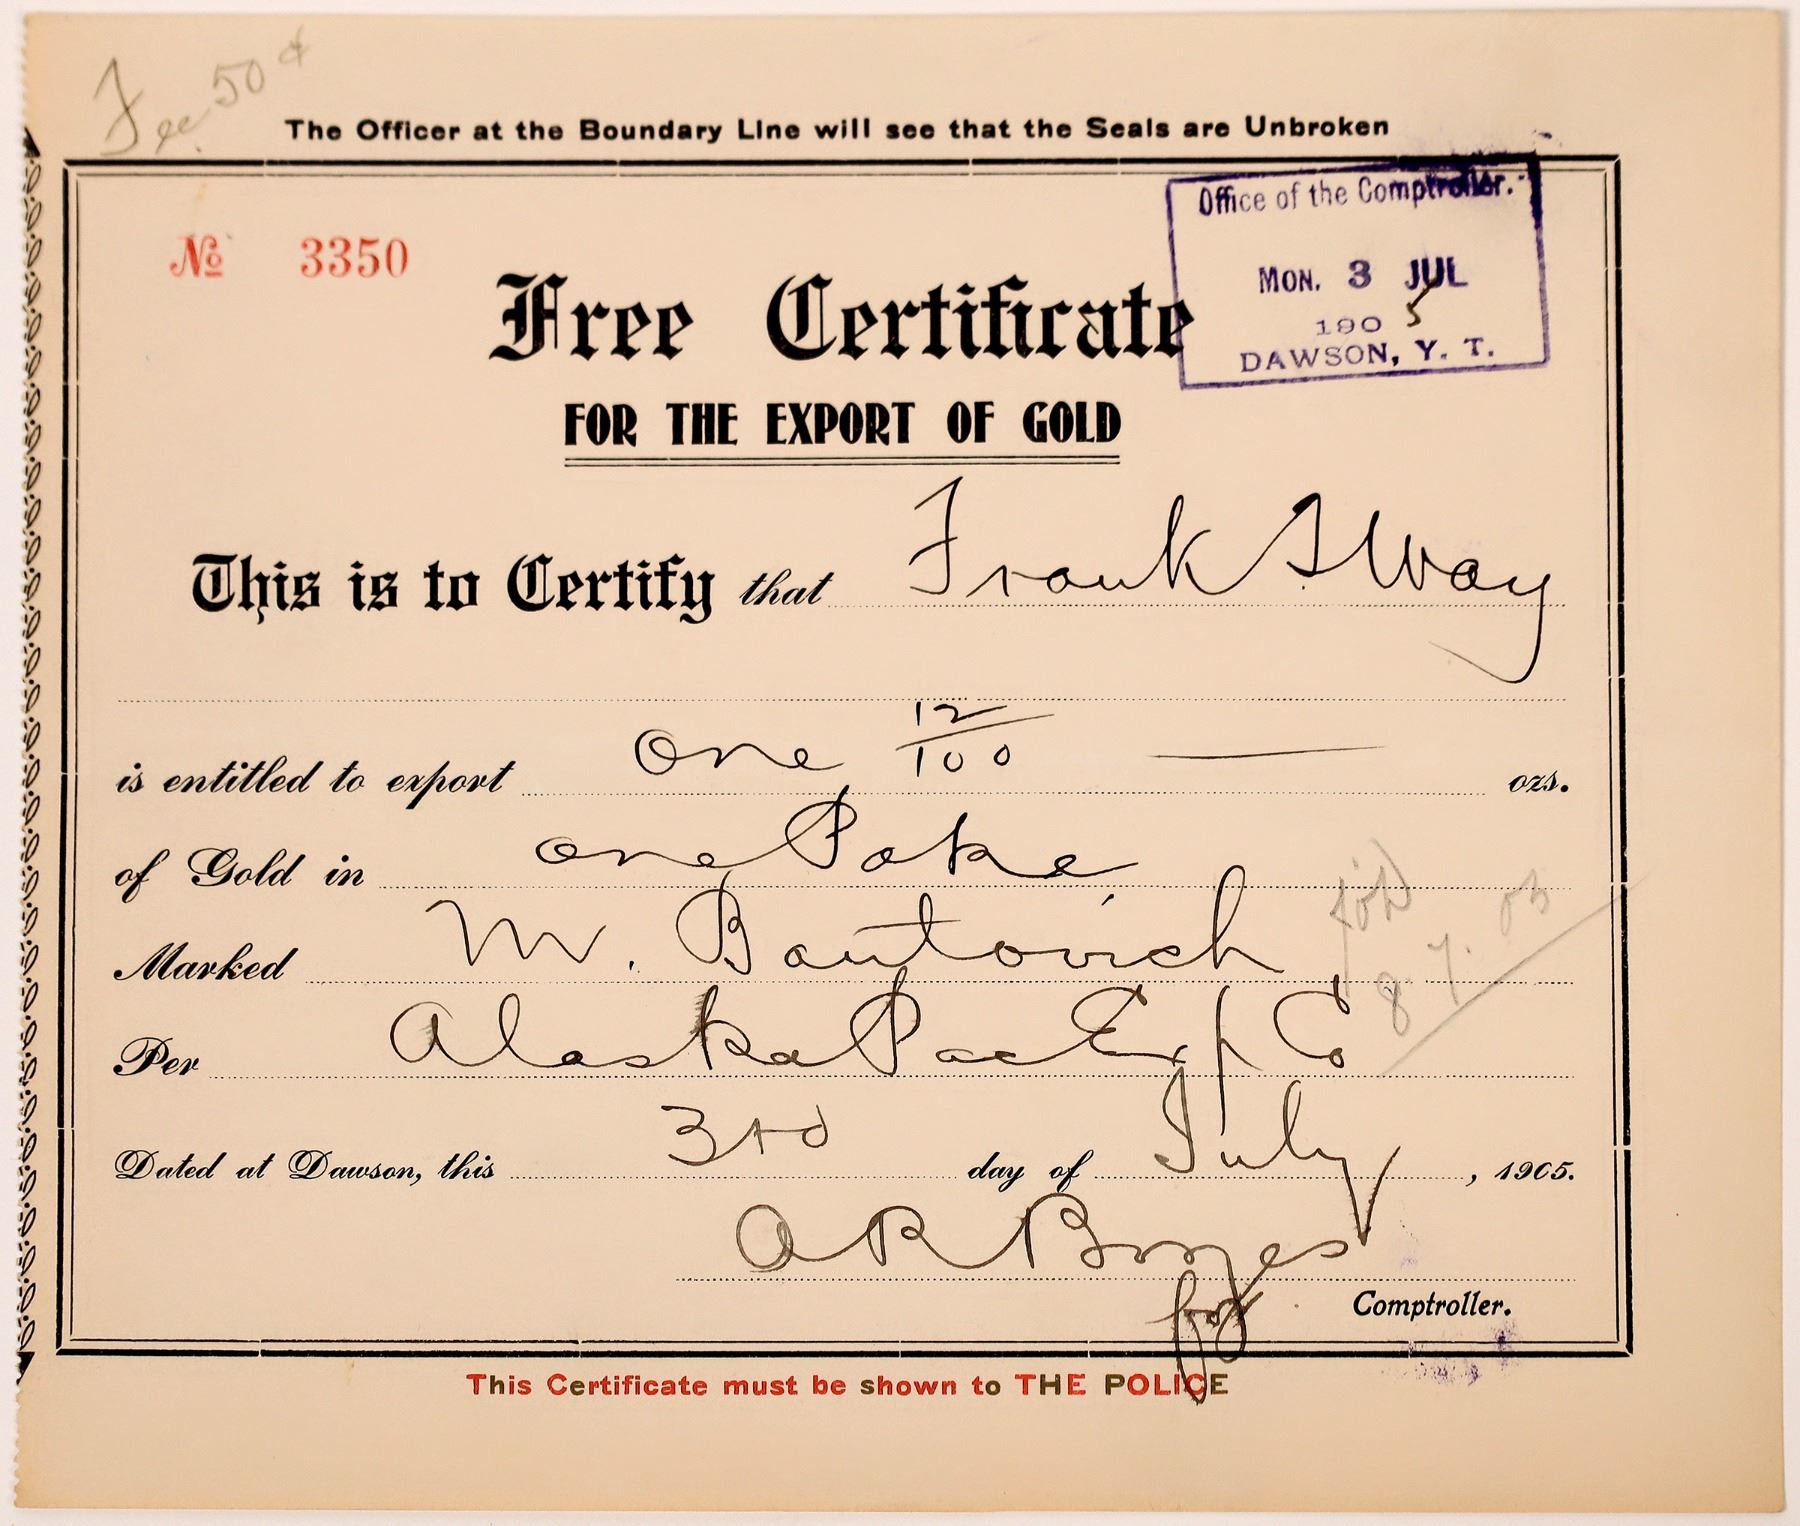 Fee 50 ¢
The Officer at the Boundary Line will see that the Seals are Unbroken
Office of the Comptroller.
MON. 3 JUL
1905
DAWSON, Y. T.
No 3350
Free Certificate
FOR THE EXPORT OF GOLD
This is to Certify that Frank S Way
is entitled to export One 12/100 — ozs.
of Gold in one Poke
Marked M. Bautovich
Per Alaska Pac Exp Co
8 7. 05
Dated at Dawson, this 3rd day of July, 1905.
A R
for Comptroller.
This Certificate must be shown to THE POLICE